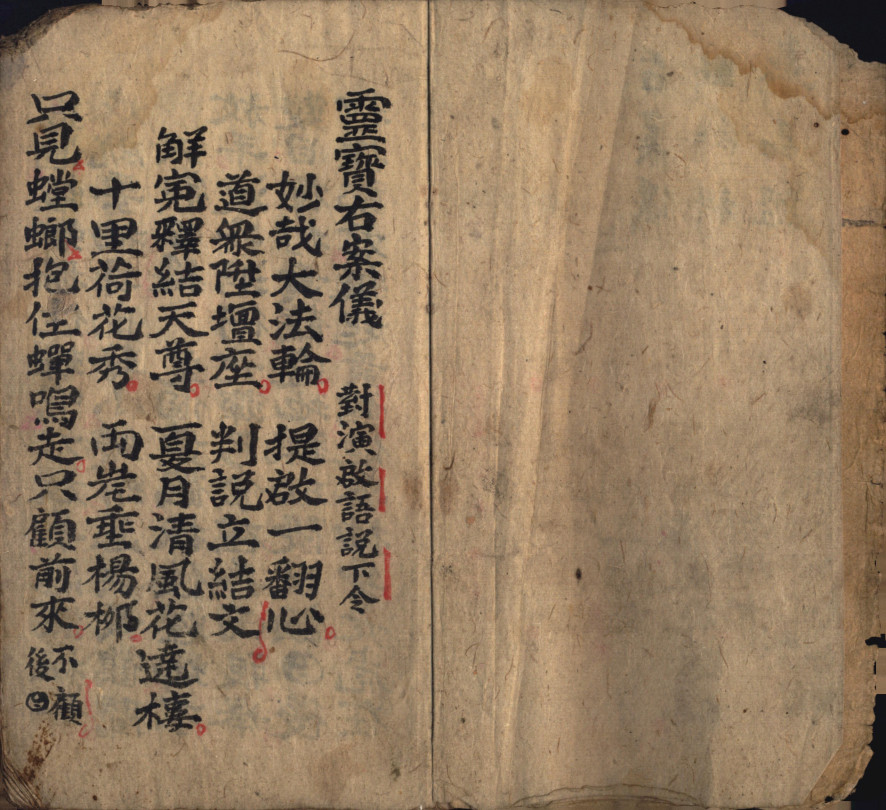 靈寶右案儀 對演啟語說下令
妙哉大法輪 提啟一翻心
道眾陞壇座 判説立結文
解寃釋結天尊 夏月清風花達樓
十里荷花秀 両岸垂楊栁
只見螳螂抱住蟬鳴走只顧前來不顧後